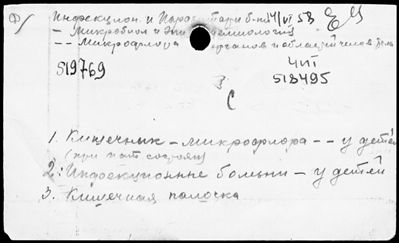 Ф) Инфекцион. и Паразитарн б-ни 14/VI 58 ЕМ
– Микробиол и Эпидемиология
-- Микрофлора органов и областей челов. тела
519769
4ИТ
518495
3
С
1. Кишечник – микрофлора -- у детей
(при пат. состоян)
2. Инфекционные болезни – у детей
3. Кишечная палочка